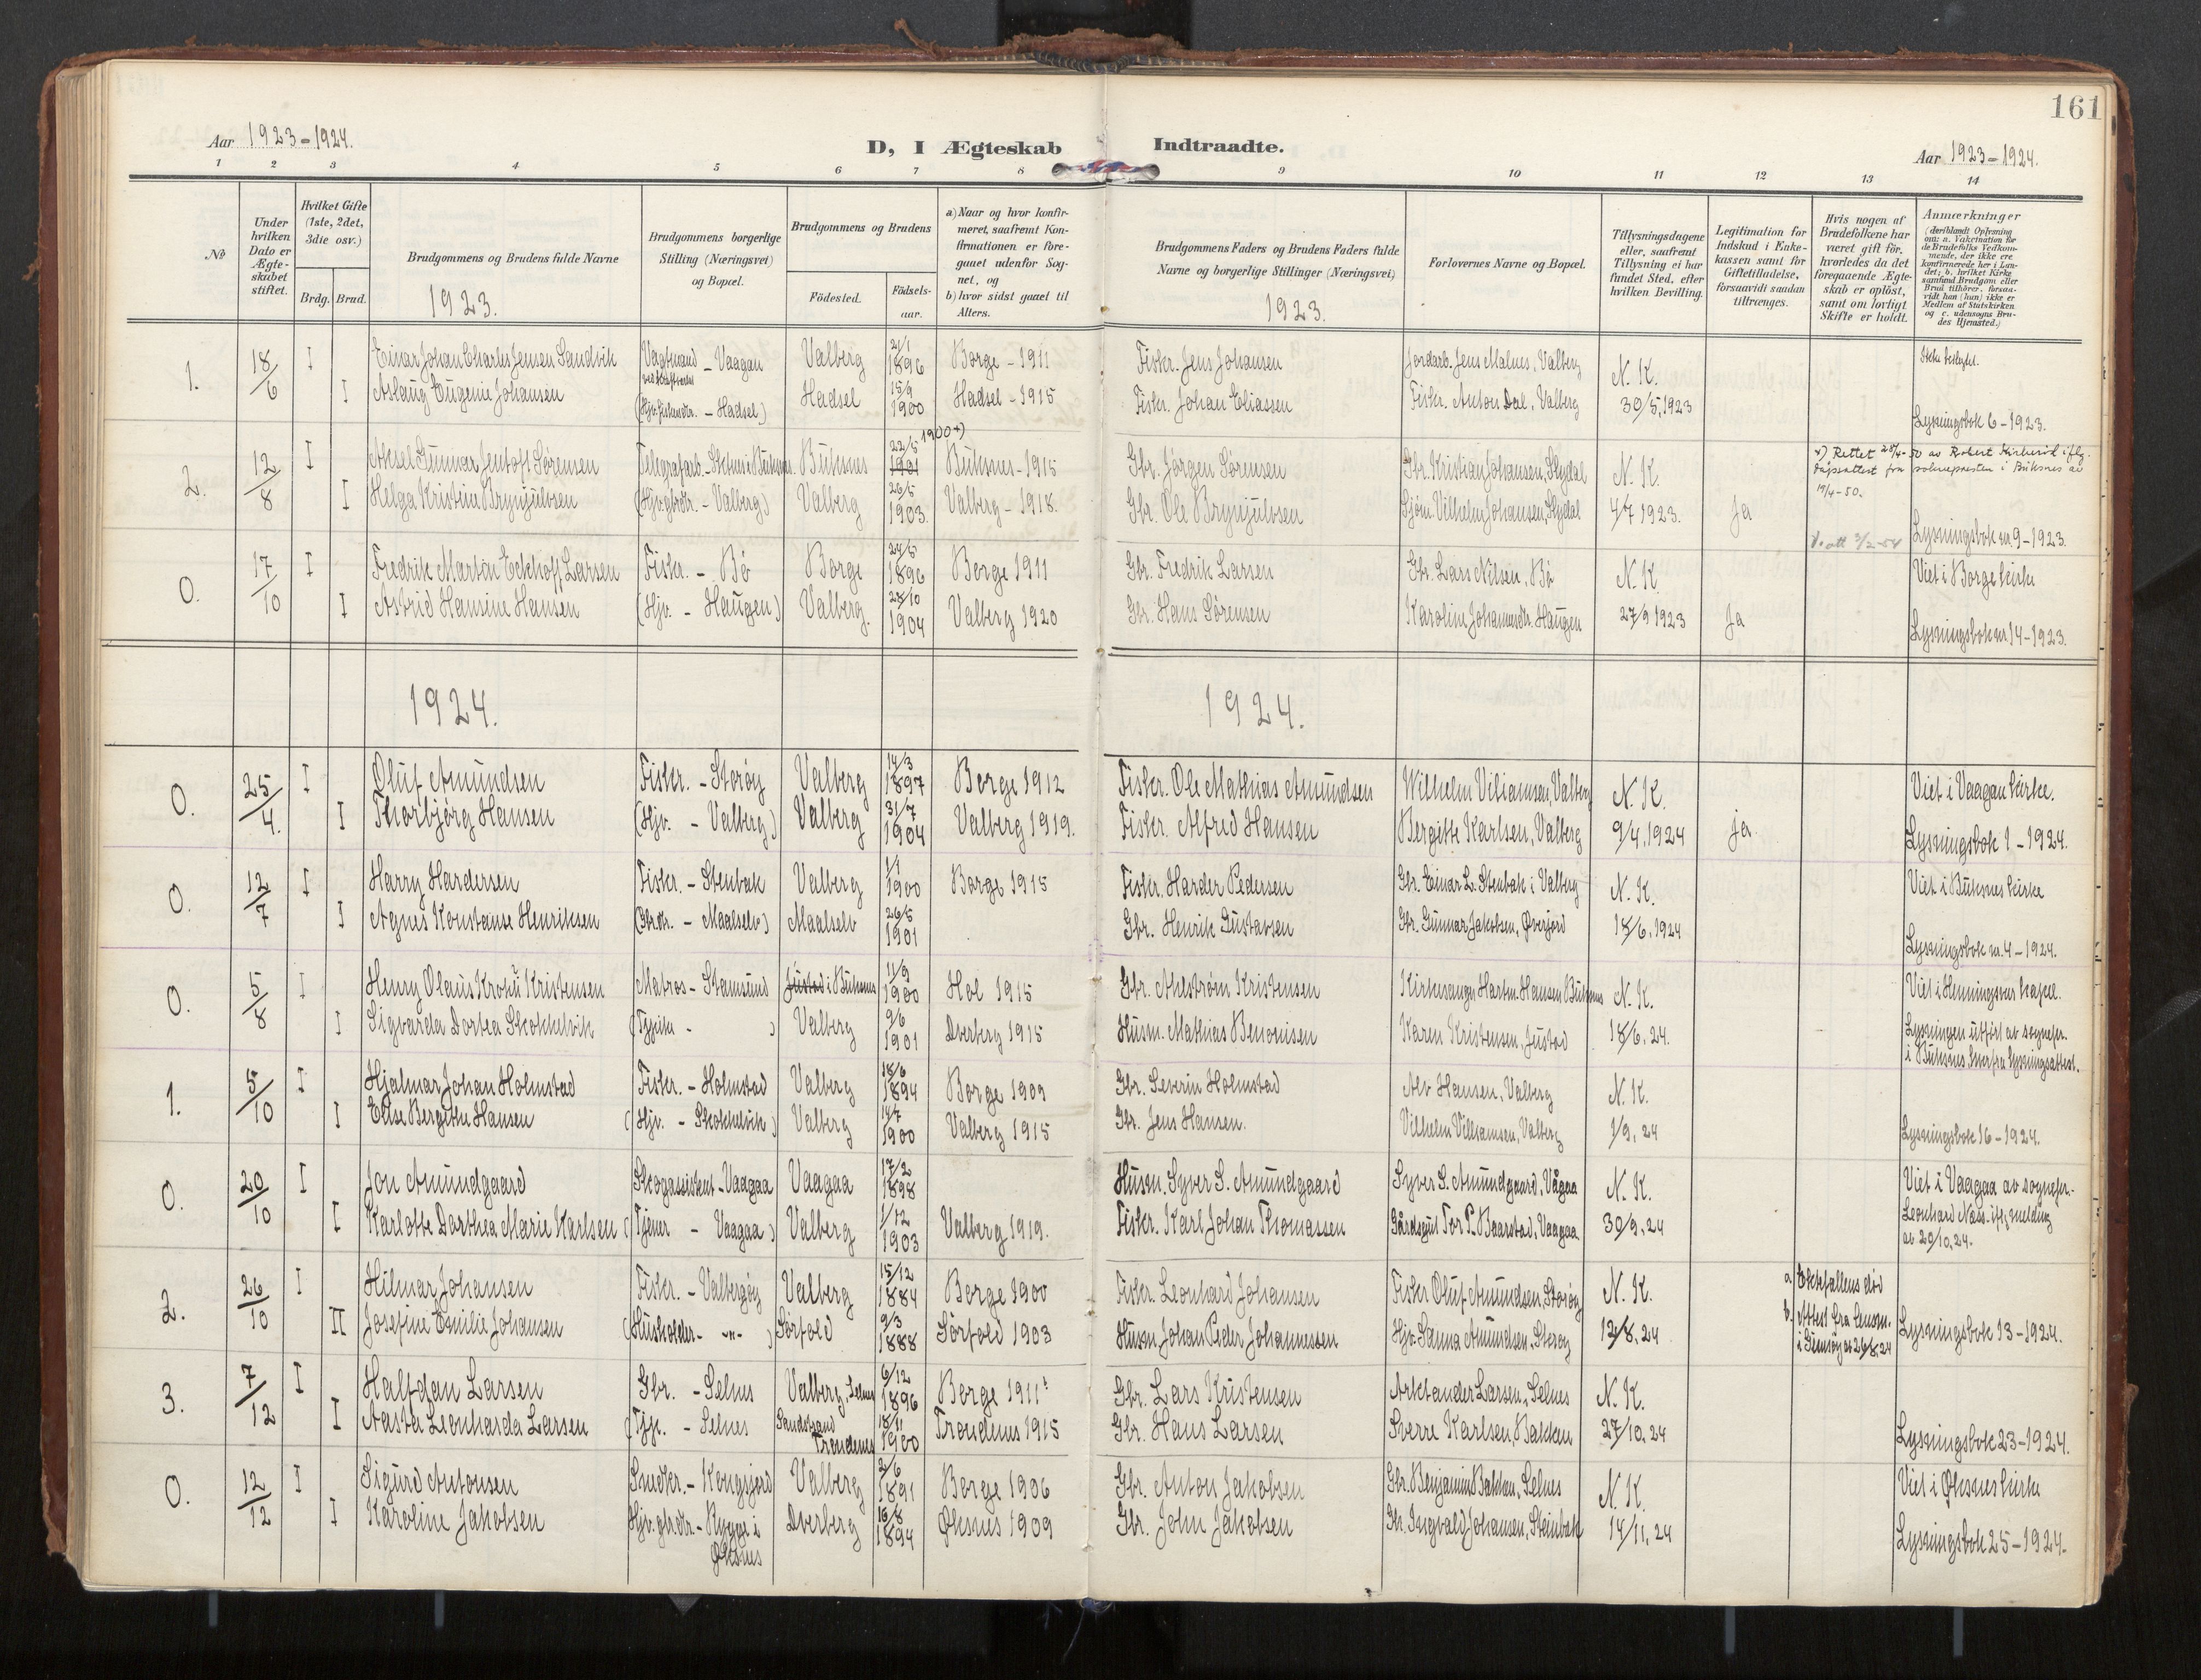 161
Aar 1923-1924.
D, I Ægteskab Indtraadte.
Aar 1923-1924.
1 2 3 4 5 6 7 8 9 10 11 12 13 14
No
Under hvilken Dato er Ægteskabet stiftet.
Hvilket Gifte (1ste, 2det, 3die osv.)
Brdg. Brud.
Brudgommens og Brudens fulde Navne
Brudgommens borgerlige Stilling (Næringsvei) og Bopæl.
Brudgommens og Brudens
Födested. Födselsaar.
a) Naar og hvor konfirmeret, saafremt Konfirmationen er foregaaet udenfor Sognet, og
b) hvor sidst gaaet til Alters.
Brudgommens Faders og Brudens Faders fulde Navne og borgerlige Stillinger (Næringsvei)
Forlovernes Navne og Bopæl.
Tillysningsdagene eller, saafremt Tillysning ei har fundet Sted, efter hvilken Bevilling.
Legitimation for Indskud i Enkekassen samt for Giftetilladelse, forsaavidt saadan tiltrænges.
Hvis nogen af Brudefolkene har været gift før, hvorledes da det foregaaende Ægteskab er oplöst, samt om lovligt Skifte er holdt.
Anmærkninger (deriblandt Oplysning om: a. Vakcination for de Brudefolks Vedkommende, der ikke ere konfirmerede her i Landet; b. hvilket Kirkesamfund Brudgom eller Brud tilhörer, forsaavidt han (hun) ikke er Medlem af Statskirken og c. udensogns Brudes Hjemsted.)
1923. 1923.
1. 18/6 I Einar Johan Charles Jensen Sandvik Vagtmand - Vaagan Valberg 21/1 1896 Borge - 1911 Fisker. Jens Johansen Jordarb. Jens Malnes, Valberg N. K.
I Aslaug Eugenie Johansen (Hjv. - Hadsel) Hadsel 15/9 1900 Hadsel - 1915 Fisker. Johan Eliassen Fisker. Anton Dal, Valberg 30/5, 1923 Lysningsbok 6 - 1923.
1900 +)
2. 12/8 I Aksel Gunnar Jentoft Sørensen Telegrafarb. - Buksnes 22/5 1901 Buksnes - 1915 Gbr. Jørgen Sørensen Gbr. Kristian Johansen, Slydal N. K. +) Rettet 20/4-50 av Robert Kirkevik iflg. dåpsattest fra soknepresten i Buksnes av 19/4-50.
I Helga Kristine Brynjulvsen (Hjv. gbrdtr. - Valberg) Valberg 26/5 1903. Valberg - 1918. Gbr. Ole Brynjulvsen Sjøm. Vilhelm Johansen, Slydal 4/7 1923. Ja Lysningsbok nr. 9 - 1923.
V. att 3/2-54
0. 17/10 I Fredrik Martin Eckhoff Larsen Fisker. - Bø Borge 24/5 1896 Borge 1911 Gbr. Fredrik Larsen Gbr. Lars Nilsen, Bø N. K. Viet i Borge kirke
I Astrid Hansine Hansen (Hjv. - Haugen) Valberg. 28/10 1904 Valberg 1920 Gbr. Hans Sørensen Karolin Johannesdtr. Haugen 27/9 1923 Ja Lysningsbok nr 14 - 1923.
1924. 1924.
0. 25/4. I Oluf Amundsen Fisker. - Storøy Valberg 14/3 1897 Borge 1912 Fisker. Ole Mathias Amundsen Wilhelm Viliamsen, Valberg N. K. Viet i Vaagan kirke.
I Thorbjørg Hansen (Hjv. - Valberg) Valberg 31/7 1904 Valberg 1919. Fisker. Alfred Hansen Bergitte Karlsen, Valberg 9/4, 1924 ja. Lysningsbok 1 - 1924.
0. 12/7 I Harry Hardersen Fisker. - Stenbak Valberg 1/1 1900 Borge 1915 Fisker. Harder Pedersen Gbr. Einar L. Stenbak i Valberg N. K. Viet i Buksnes kirke
I Agnes Konstanse Henriksen (Gbrdtr. - Maalselv) Maalselv 26/5 1901 Gbr. Henrik Gustavsen Gbr. Gunnar Jakobsen, Øverjord 18/6, 1924 Lysningsbok nr. 4 - 1924.
0. 5/8 I Henry Olaus Kristensen Matros - Stamsund Justad i Buksnes 11/9 1900 Hol 1915 Gbr. Ahlstrøm Kristensen Kirkesanger Hartm. Hansen Buksnes N. K. Viet i Henningsvær kapel.
I Sigvarda Dortea Skokkelvik Valberg 9/6 1901 Dverberg 1915 Husm. Mathias Benonisen Karen Kristensen, Justad 18/6, 24. Lysningen utført av sognepr. i Buksnes
1. 5/10 I Hjalmar Johan Holmstad Fisker. - Holmstad Valberg 18/6 1894 Borge 1909 Gbr. Severin Holmstad Alv Hansen, Valberg N. K.
I Elise Bergithe Hansen (Hjv. - Skokkelvik) Valberg 14/7 1900 Valberg 1915 Gbr. Jens Hansen. Vilhelm Villiamsen, Valberg 1/9, 24 Lysningsbok 16 - 1924.
0. 20/10 I Jon Amundgaard Skogassistent - Vaagaa Vaagaa 17/2 1898 Husm. Syver S. Amundgaard Syver S. Amundgaard, Vågaa N. K. Viet i Vaagaa av sognepr.
I Karlotte Dorthea Marie Karlsen (Tjener - Vaagaa) Valberg 1/12 1903 Valberg 1919. Fisker. Karl Johan Thomassen Gårdsgut Tor P. Baarstad, Vaagaa 30/9, 24 Leonhard Næss ifl. melding av 20/10, 24.
2. 26/10 I Hilmar Johansen Fisker. - Valbergøy Valberg 15/12 1884 Borge 1900 Fisker. Leonhard Johansen Fisker Oluf Amundsen, Storøy N. K. a. Ektefællens død
II Josefine Emilie Johansen (Husholder. - "-) Sørfold 9/3 1888 Sørfold 1903 Husm. Johan Peder Johannessen Hjv. Sanna Amundsen, Storøy 12/8, 24 b. Attest fra lensm. i Gimsøy av 26/8, 24 Lysningsbok 13 - 1924.
3. 7/12 I Halfdan Larsen Gbr. - Selnes Valberg, Selnes 6/12 1896 Borge 1911 Gbr. Lars Kristensen Arktander Larsen, Selnes N. K.
I Aasta Leonharda Larsen (Tjp. - Selnes Sandstrand Trondenes 18/11 1900 Trondenes 1915 Gbr. Hans Larsen Sverre Karlsen, Bakken 27/10, 24 Lysningsbok 23 - 1924.
0. 12/12 I Sigurd Antonsen Snedkr. - Kongsjord Valberg 2/6 1891 Borge 1906 Gbr. Anton Jakobsen Gbr. Benjamin Bakken, Selnes N. K. Viet i Øksnes kirke
I Karoline Jakobsen Hjv. gbrdtr. - Rygge i Øksnes Dverberg 16/8 1894 Øksnes 1909 Gbr. John Jakobsen Gbr. Ingvald Johansen, Steinbak 14/11, 24 Lysningsbok 25 - 1924.